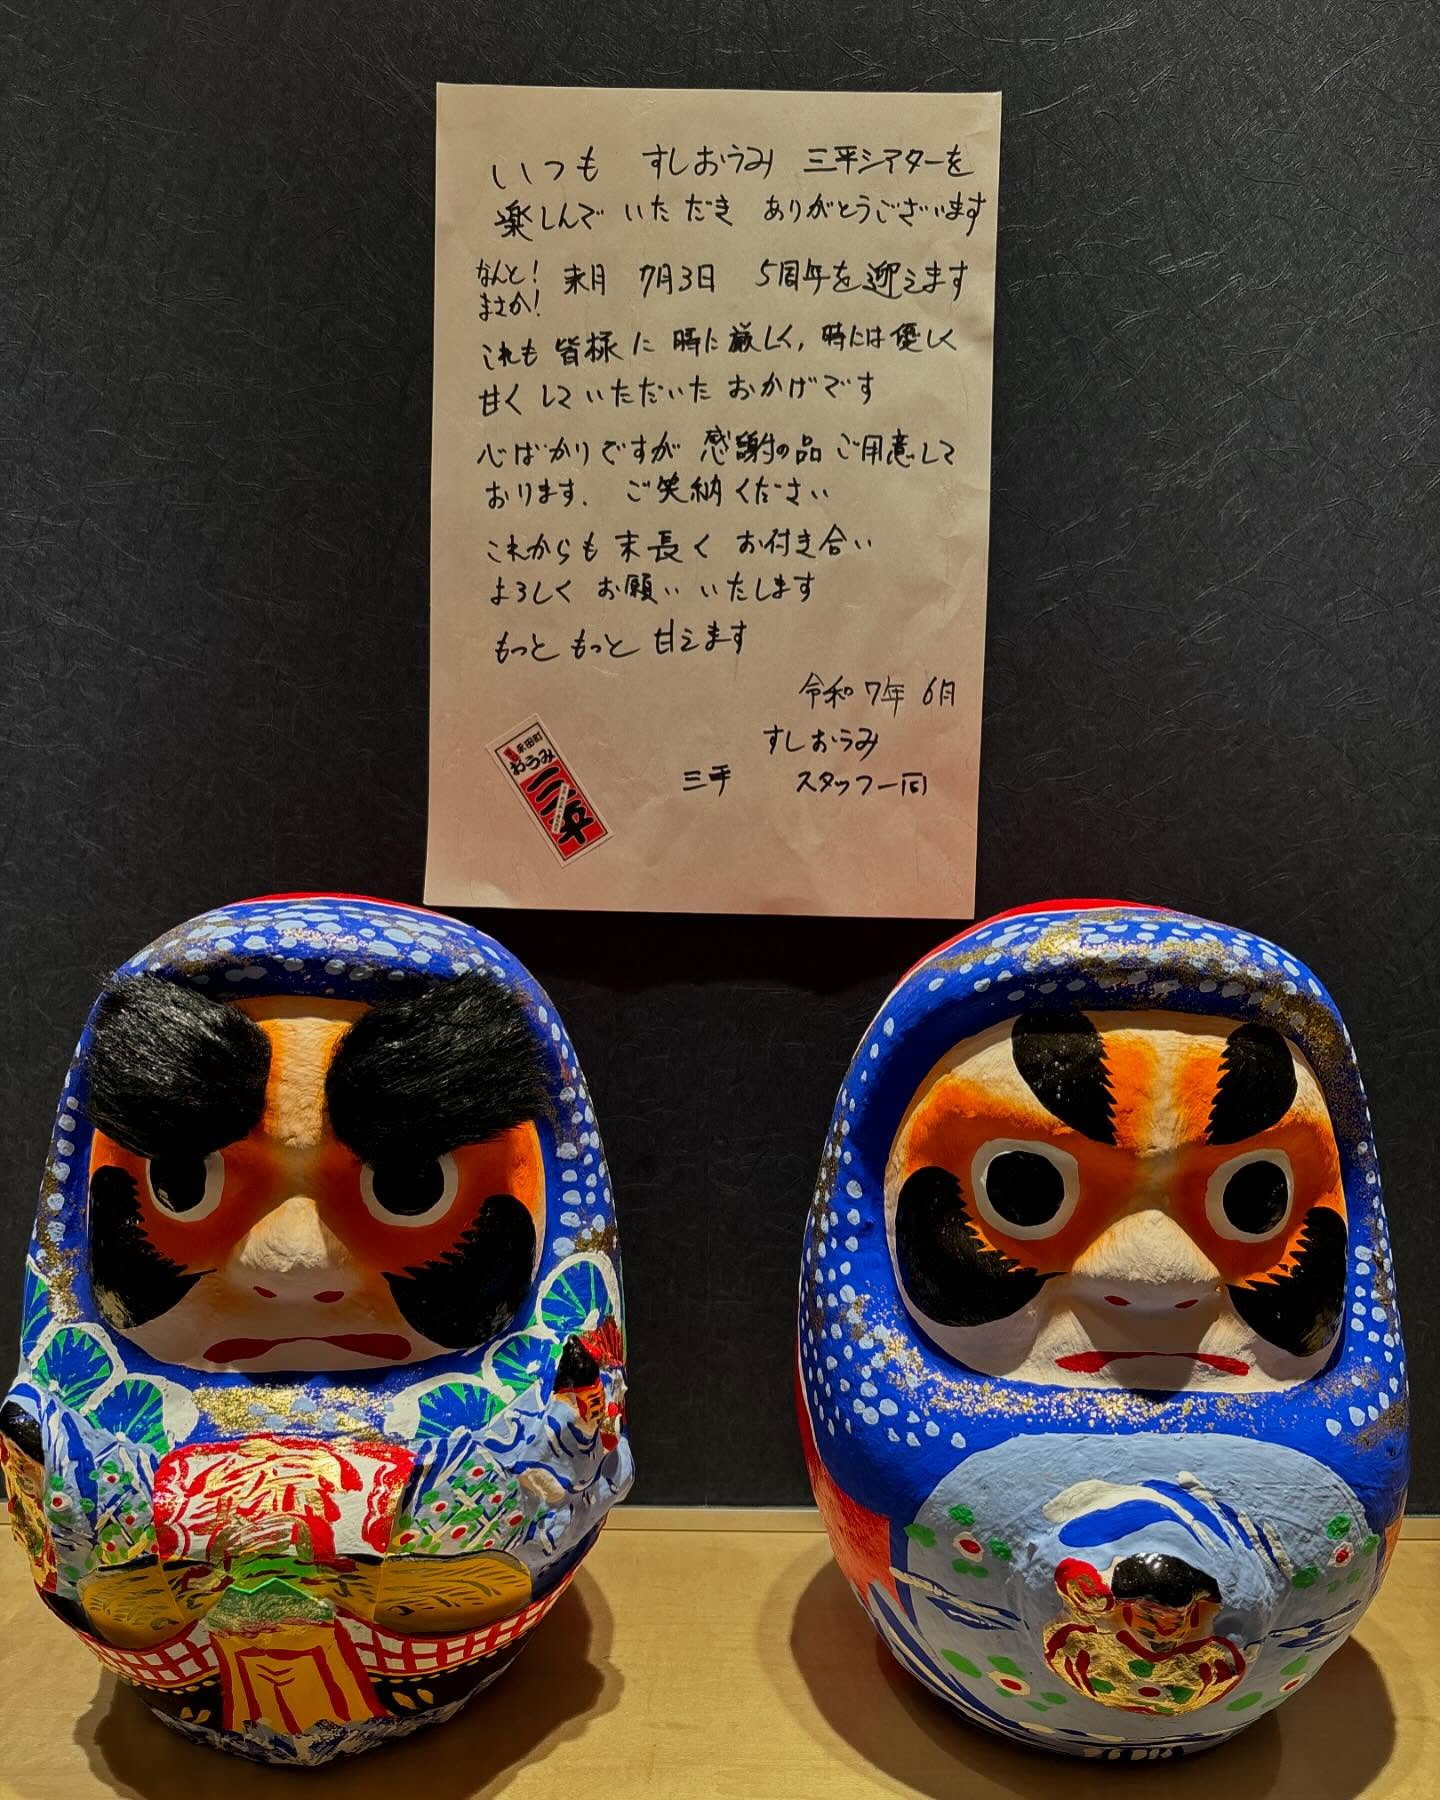 いつも すしおうみ 三平シアターを
楽しんで いただき ありがとうございます
なんと!
まさか!
来月 7月3日 5周年を迎えます
これも 皆様に 時に厳しく,時には優しく
甘くしていただいた おかげです
心ばかりですが 感謝の品 ご用意して
おります. ご笑納ください
これからも 末長く お付き合い
よろしく お願い いたします
もっと もっと 甘えます
令和7年 6月
すしおうみ
三平 スタッフ一同
永田町
おうみ
三平